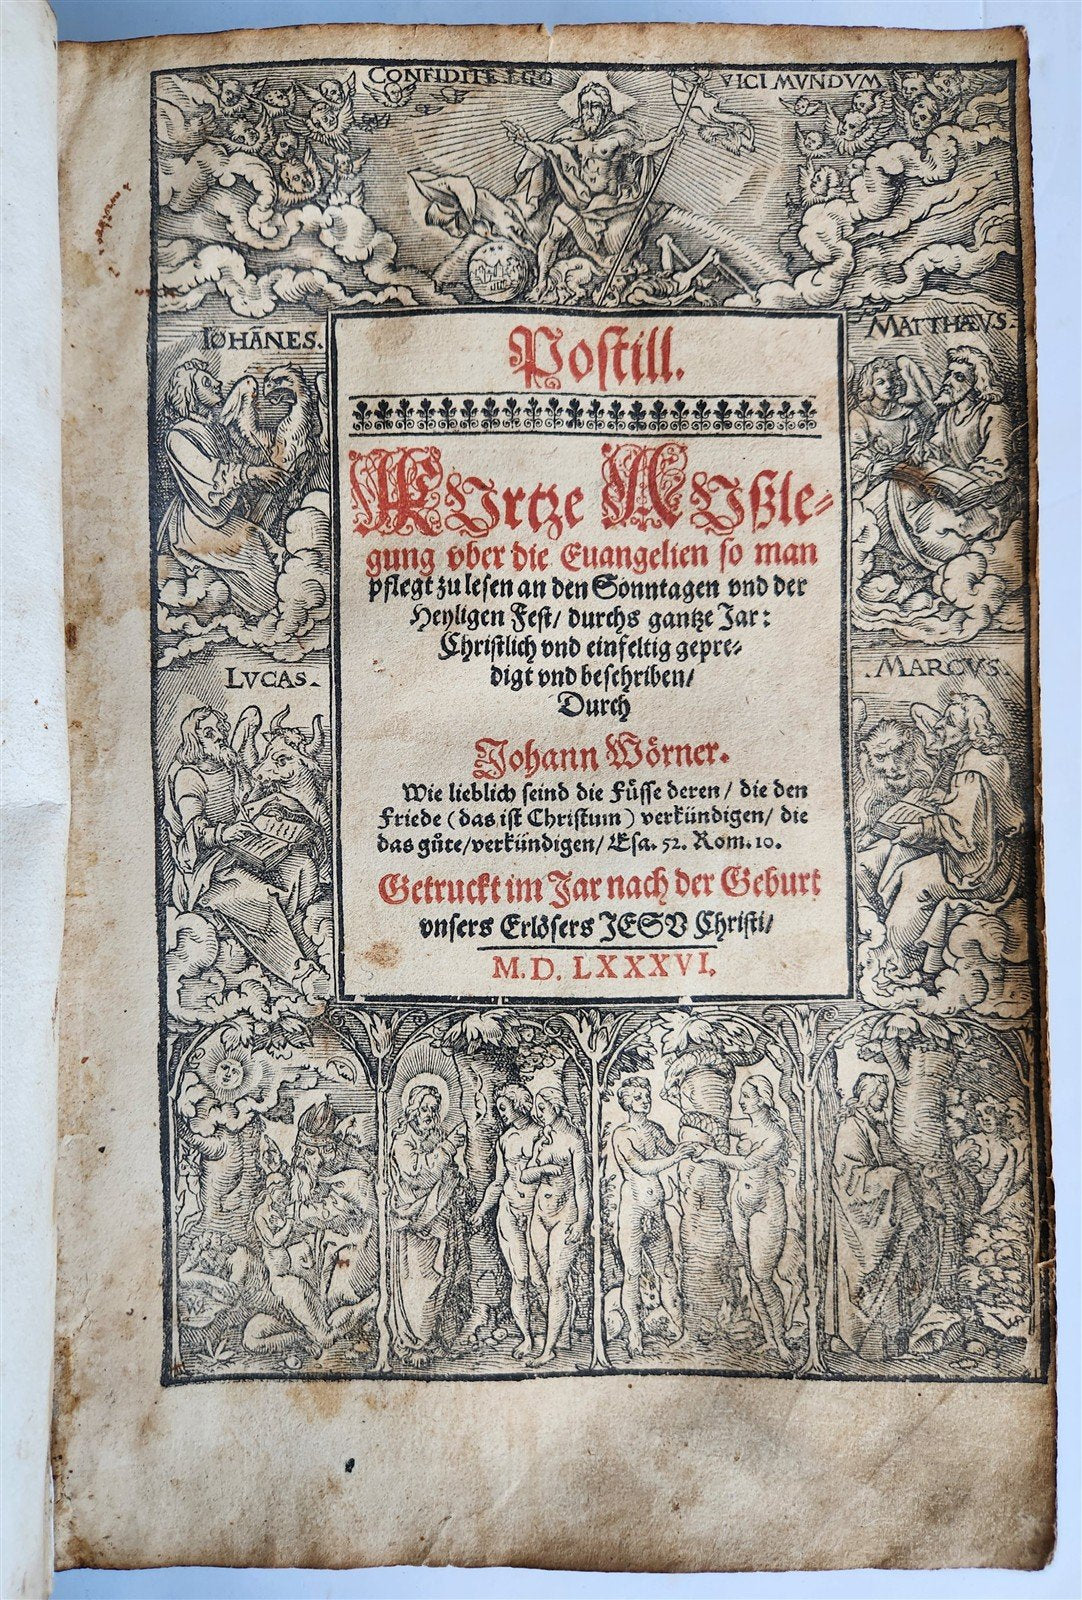 CONFIDITE EGO VICI MUNDVM
IOHANES.
MATTHÆVS.
LVCAS.
MARCVS.
Postill.
KUrtze AUßle-
gung vber die Euangelien so man
pflegt zu lesen an den Sonntagen vnd der
Heyligen Fest/ durchs gantze Jar:
Christlich vnd einfeltig gepre-
digt vnd beschriben/
Durch
Johann Wörner.
Wie lieblich seind die Füsse deren/ die den
Friede (das ist Christum) verkündigen/ die
das gůte/verkündigen/ Esa. 52. Rom. 10.
Getruckt im Jar nach der Geburt
vnsers Erlösers JESV Christi/
M. D. LXXXVI.